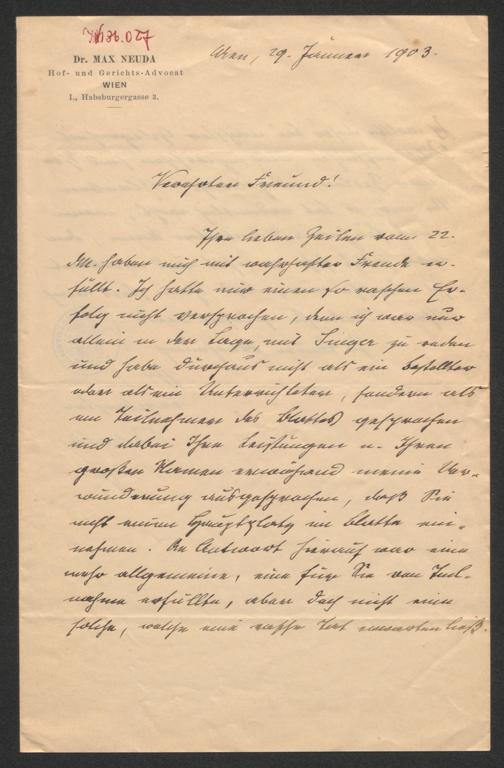 N 136.027
Dr. MAX NEUDA
Hof- und Gerichts-Advocat
WIEN
I., Habsburgergasse 3.
Wien, 29. Jänner 1903.
Verehrter Freund!
Ihre lieben Zeilen vom 22.
dM. haben mich mit wahrhafter Freude er-
füllt. Ich hatte mir einen so raschen Er-
folg nicht versprochen, denn ich war nur
allein in der Lage, mit Singer zu reden
und habe durchaus nicht als ein Bestellter
oder als ein Unterrichteter, sondern als
ein Teilnehmer des Blattes gesprochen
und dabei Ihre Leistungen u. Ihren
großen Namen erwähnend meine Ver-
wunderung ausgesprochen, daß Sie
nicht einen Hauptplatz im Blatte ein-
nehmen. Die Antwort hierauf war eine
mehr allgemeine, eine für Sie von Teil-
nahme erfüllte, aber doch nicht eine
solche, welche eine rasche Tat erwarten ließ.